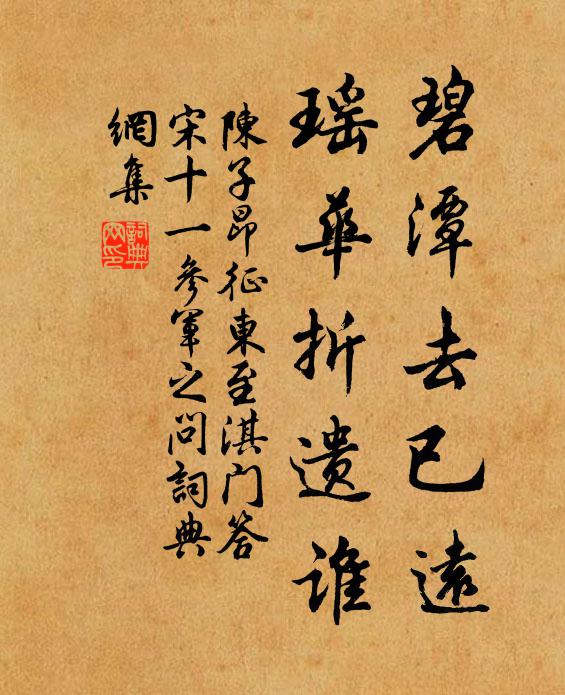 碧潭去已遠
瑶華折遺誰
陳子昂征東至淇门答
宋十一參軍之问詞典
網集
詞典
网印